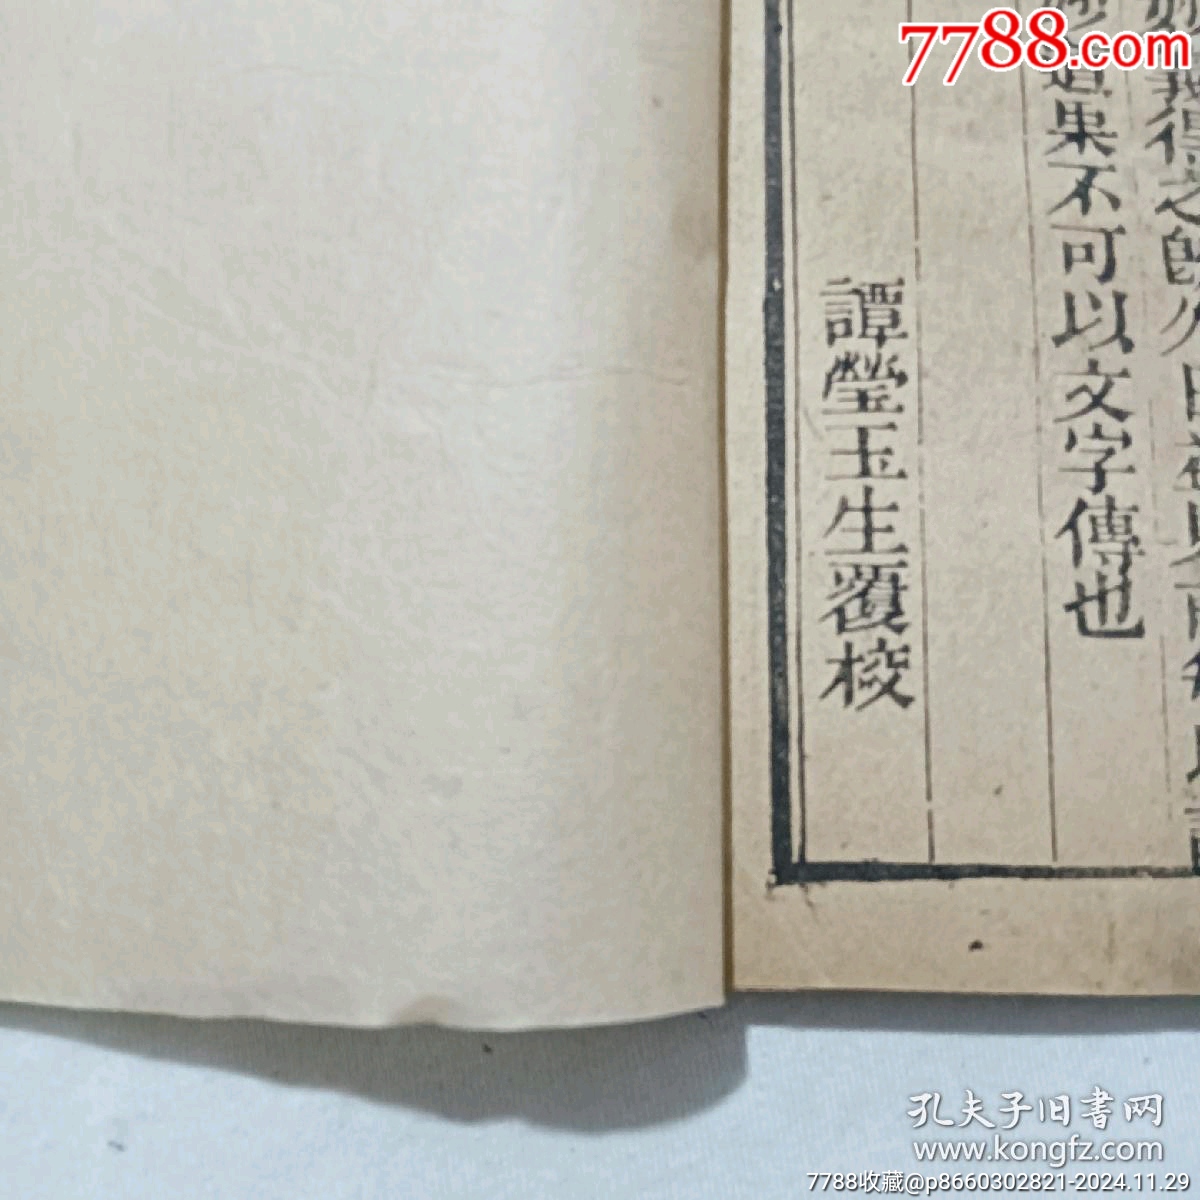 7788.com
義得之師久
道果不可以文字傳也
譚瑩玉生覆校
孔夫子旧書网
www.kongfz.com
7788收藏@p8660302821-2024.11.29